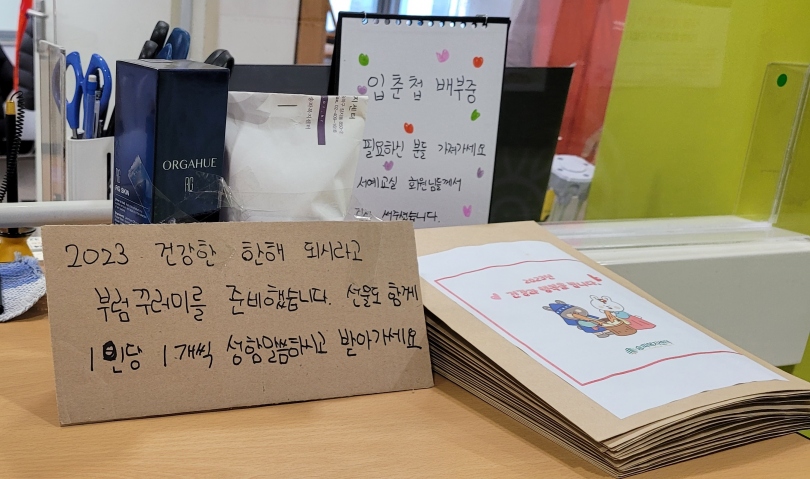 입춘첩 배부중
필요하신 분들 가져가세요
서예교실 회원님들께서
써주셨습니다.
ORGAHUE
2023 건강한 한해 되시라고
부럼꾸러미를 준비했습니다. 선물도 함께
1인당 1개씩 성함말씀하시고 받아가세요
2023년